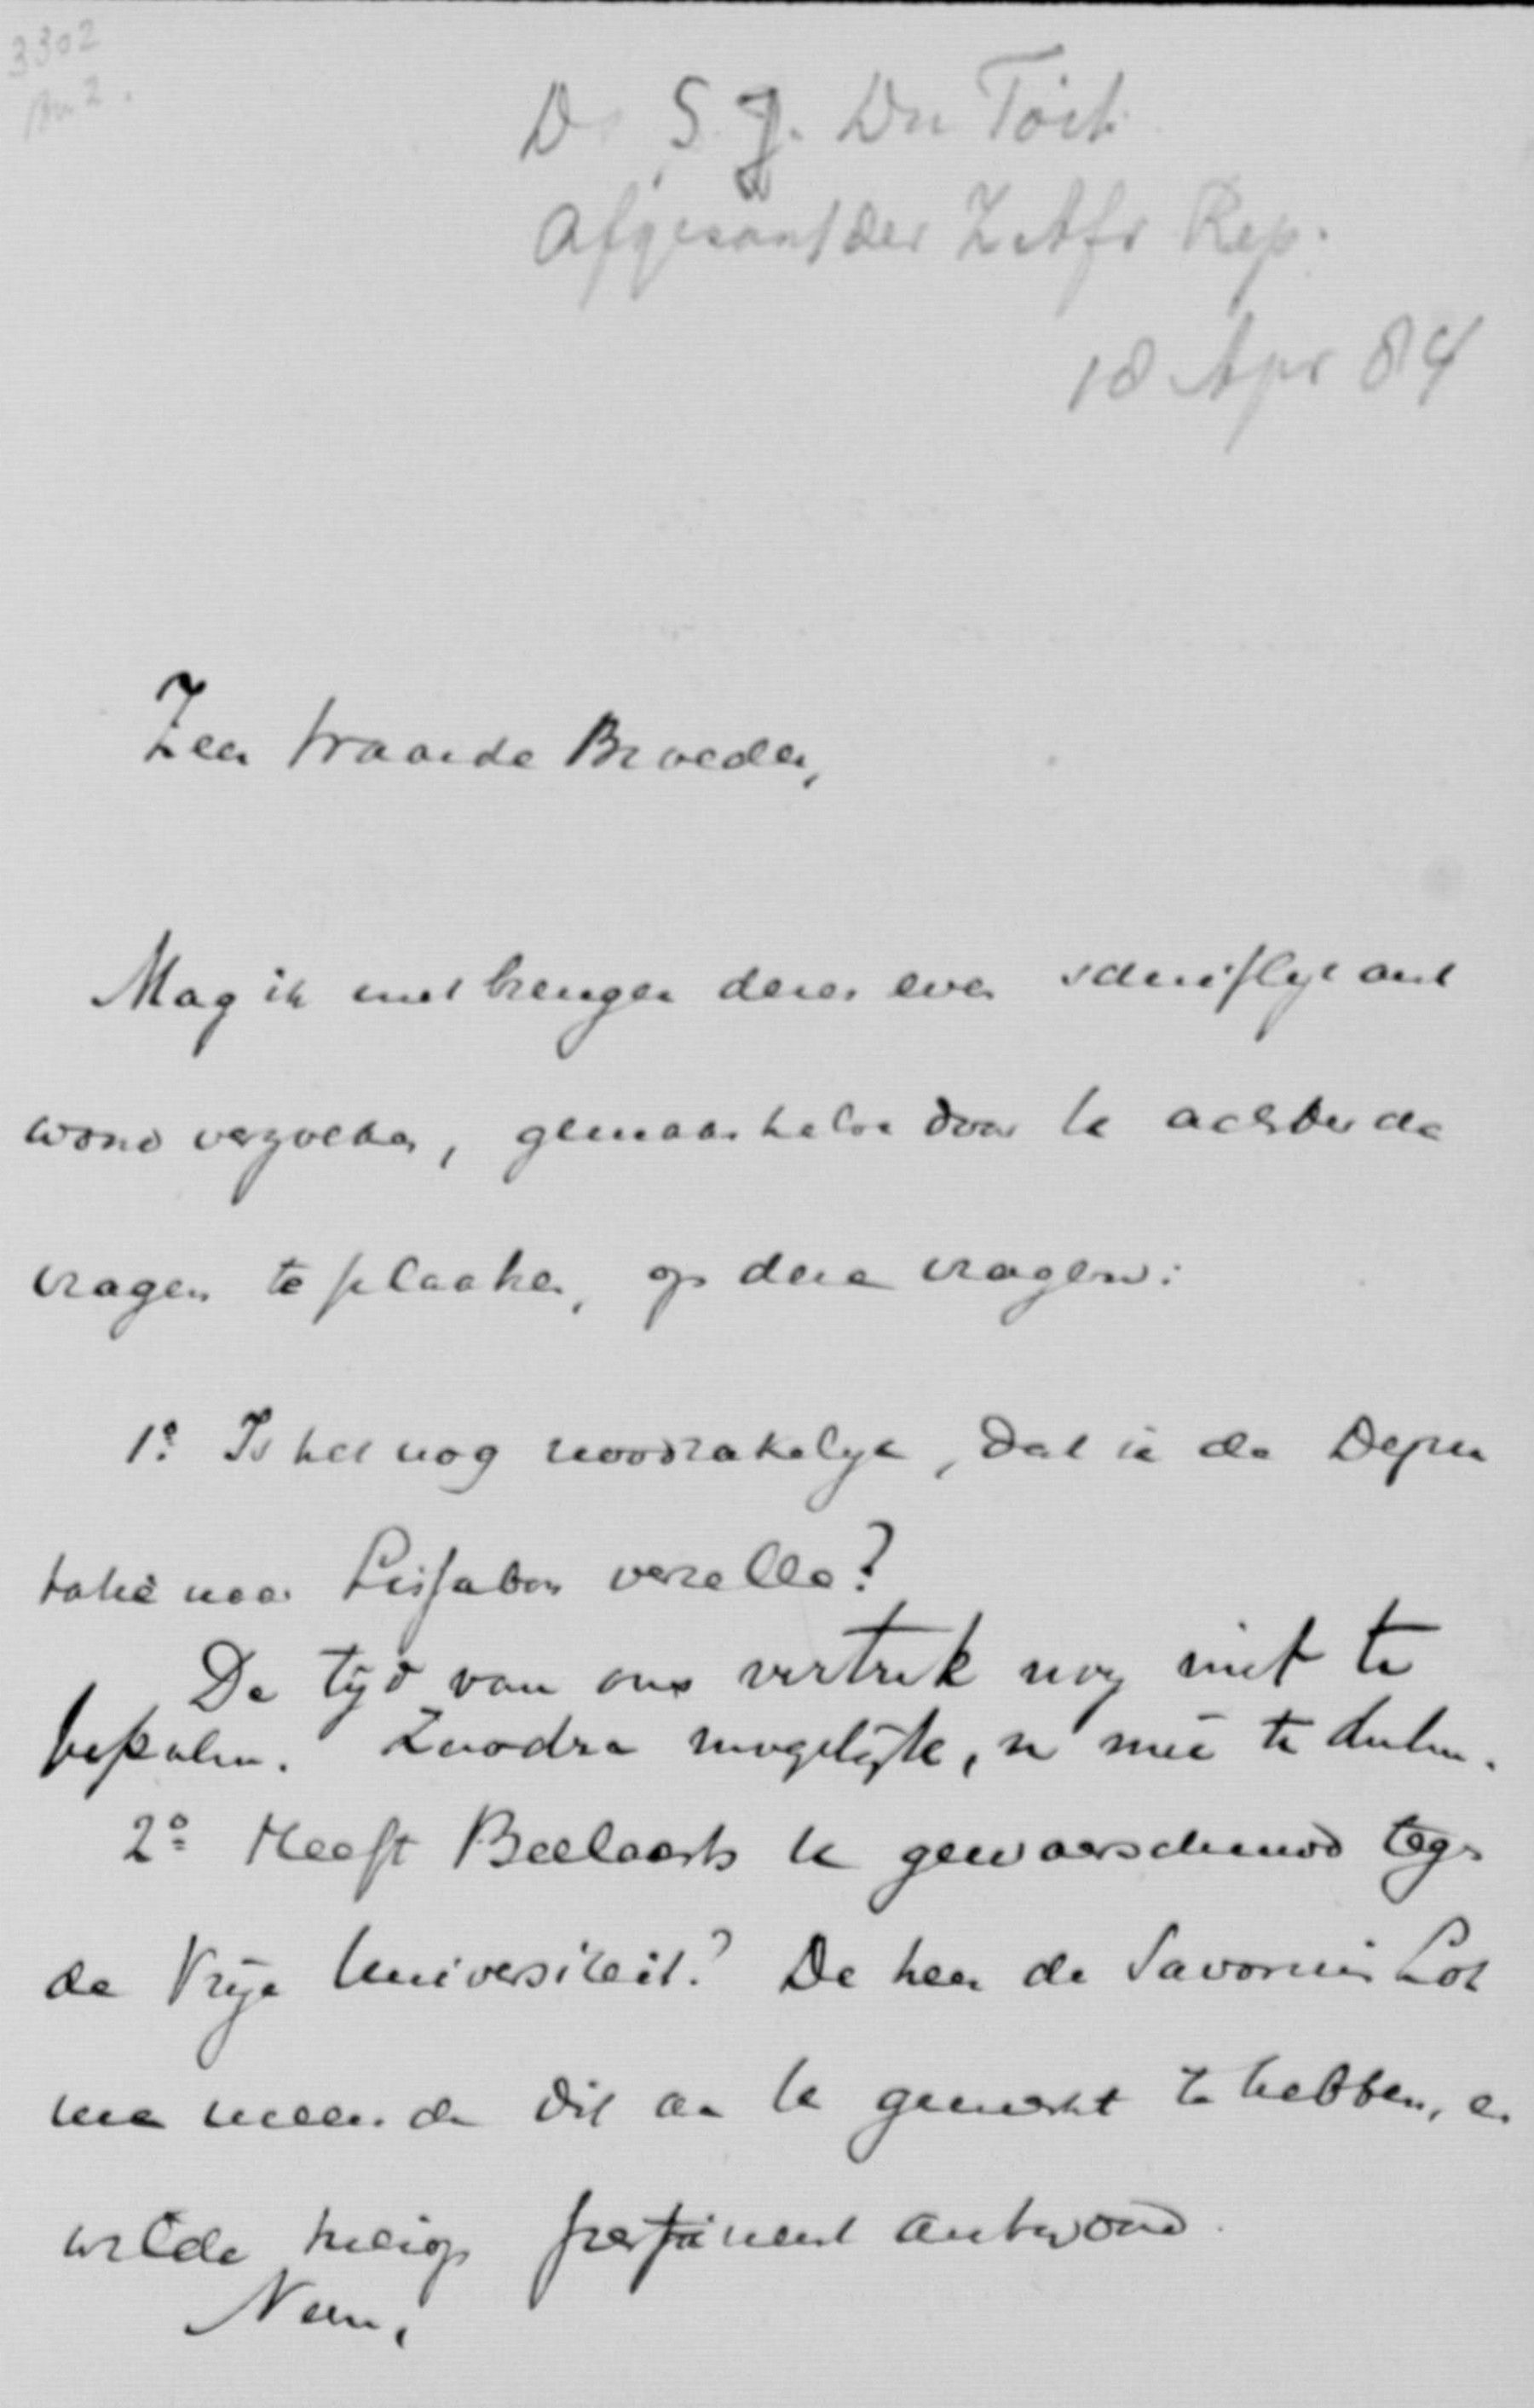 3302
Ds S. J. Du Toit
Afgesant der Z Afr Rep.
18 Apr 84
Zeer waarde Broeder,
Mag ik met brenger dezes even schriftlijk ant
woord verzoeken, gemakshalve door te achter de
vragen te plaatsen, op deze vragen:
1o. Is het nog noodzakelijk, dat ik de Depu
tatie naar Lissabon verzelle?
De tijd van ons vertrek nog niet te
bepalen. Zoodra mogelijk, u mee te deelen.
2o Heeft Beelaerts U gewaarschuwd tegen
de Vrije Universiteit? De heer de Savornin Loh
man meende dit aan U gemerkt te hebben, en
wilde hierop pertinent antwoord.
Neen.